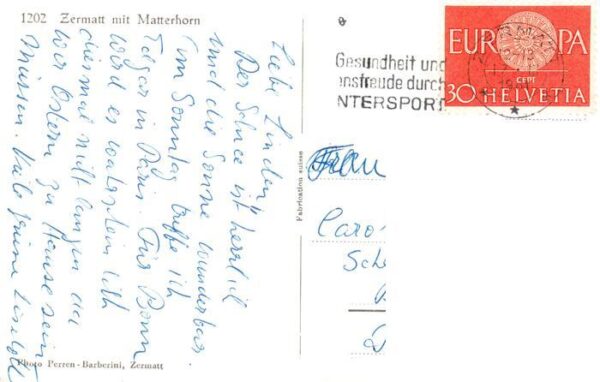 1202 Zermatt mit Matterhorn
Liebe Linden"
Der Schnee ist herrlich
und die Sonne wunderbar.
Am Sonntag treffe ich
Edgar in Paris. Für Bonn
wird es wahrscheinlich
diesmal nicht langen da
wir Ostern zu Hause sein
müssen. Viele
Photo Perren-Barberini, Zermatt
Fabrication suisse
Gesundheit und
ensfreude durch
NTERSPORT
EUROPA
CEPT
30 HELVETIA
Frau
Caro
Sch